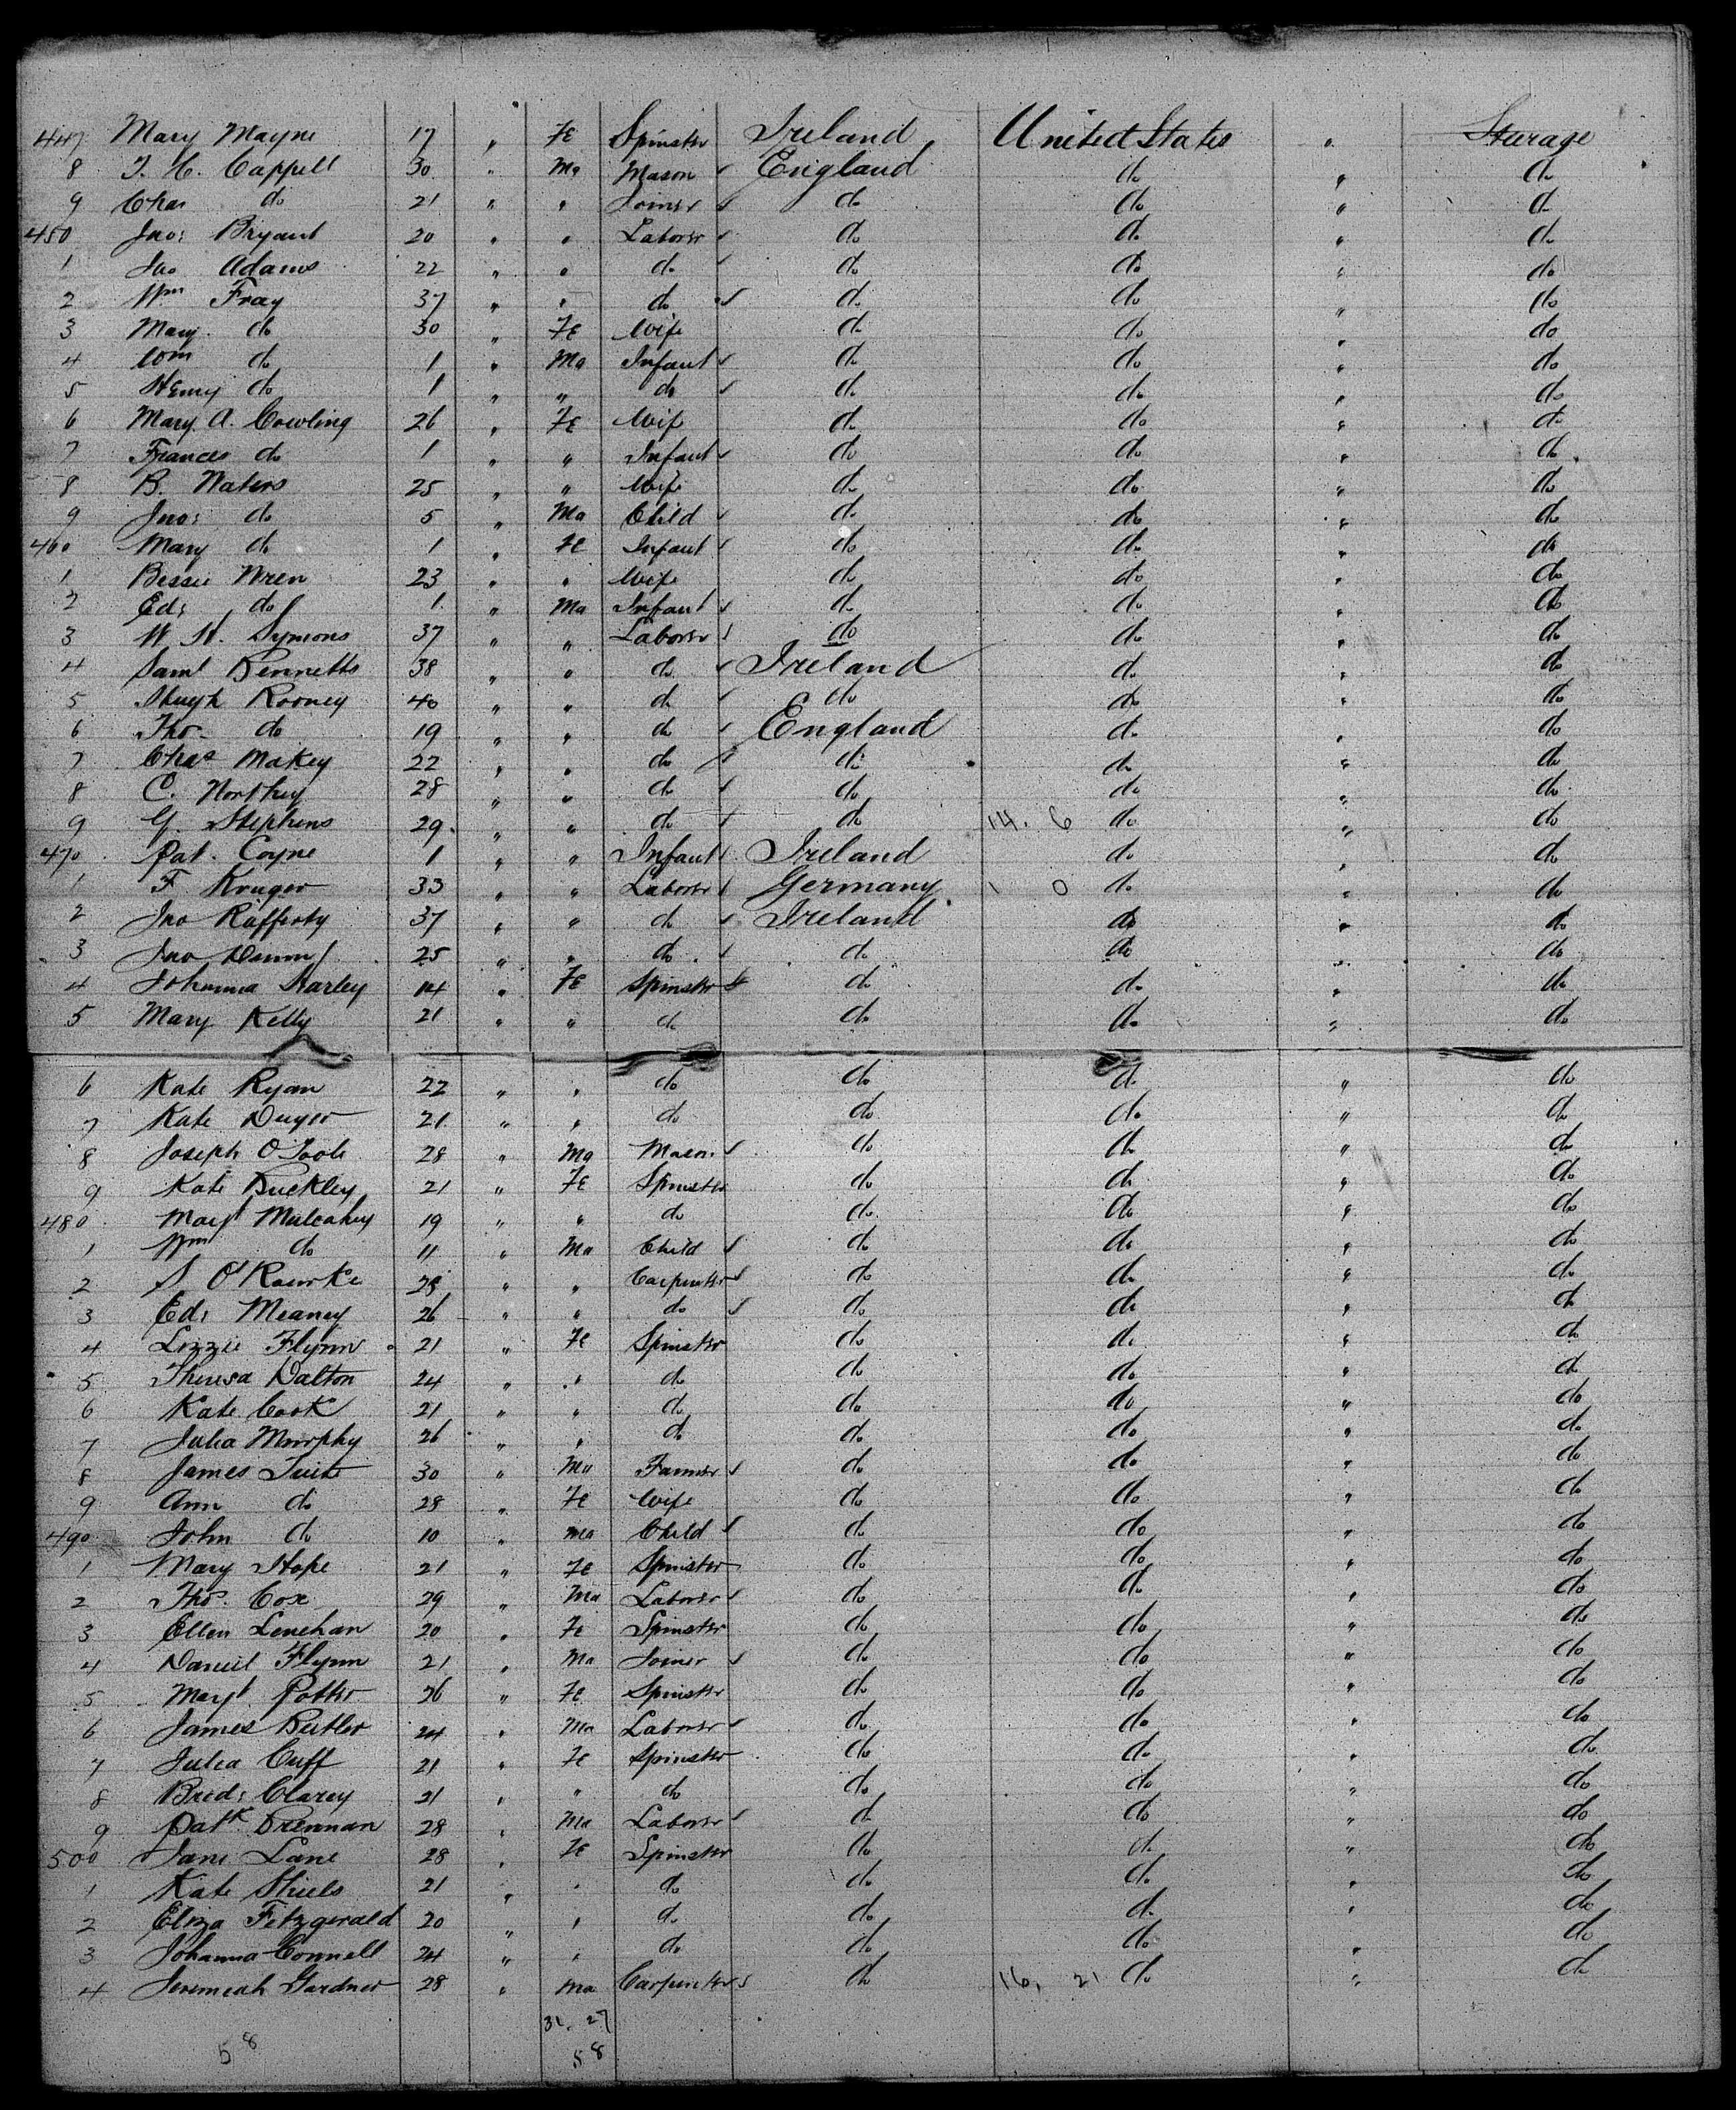 447 Mary Mayne 17 " Fe Spinster Ireland United States " Sturage
8 T. H. Cappell 30 " Ma Mason England do " do
9 Chas do 21 " " Joiner do do " do
450 Jno: Bryant 20 " " Laborer do do " do
1 Jno Adams 22 " " do do do " do
2 Wm Fray 37 " " do do do " do
3 Mary do 30 " Fe Wife do do " do
4 Wm do 1 " Ma Infant do do " do
5 Henry do 1 " " do do do " do
6 Mary A. Cowling 26 " Fe Wife do do " do
7 Frances do 1 " " Infant do do " do
8 B. Waters 25 " " Wife do do " do
9 Jno: do 5 " Ma Child do do " do
460 Mary do 1 " Fe Infant do do " do
1 Bessie Wren 23 " " Wife do do " do
2 Ed: do 1 " Ma Infant do do " do
3 W. H. Symons 37 " " Laborer do do " do
4 Saml Bennetts 38 " " do Ireland do " do
5 Hugh Rooney 40 " " do do do " do
6 Tho do 19 " " do England do " do
7 Chas Makey 22 " " do do do " do
8 C. Northey 28 " " do do do " do
9 G. Stephens 29 " " do do 14. 6 do " do
470 Pat. Coyne 1 " " Infant Ireland do " do
1 F Kruger 33 " " Laborer Germany 1 0 do " do
2 Jno Rafferty 37 " " do Ireland do " do
3 Jno 25 " " do do do " do
4 Johanna 14 " Fe Spinster do do " do
5 Mary Kelly 21 " " do do do " do
6 Kate Ryan 22 " " do do do " do
7 Kate Dwyer 21 " " do do do " do
8 Joseph O'Toole 28 " Ma Mason do do " do
9 Kate Buckley 21 " Fe Spinster do do " do
480 Margt Mulcahy 19 " " do do do " do
1 Wm do 11 " Ma Child do do " do
2 S O'Rourke 28 " " Carpenter do do " do
3 Ed: Meaney 26 " " do do do " do
4 Lizzie Flynn 21 " Fe Spinster do do " do
5 Theresa Dalton 24 " " do do do " do
6 Kate Cook 21 " " do do do " do
7 Julia Murphy 26 " " do do do " do
8 James Tuite 30 " Ma Farmer do do " do
9 Ann do 28 " Fe Wife do do " do
490 John do 10 " Ma Child do do " do
1 Mary Hope 21 " Fe Spinster do do " do
2 Thos. Cox 29 " Ma Laborer do do " do
3 Ellen Lenehan 20 " Fe Spinster do do " do
4 Daniel Flynn 21 " Ma Joiner do do " do
5 Margt Potter 26 " Fe Spinster do do " do
6 James Butler 24 " Ma Laborer do do " do
7 Julia Cuff 21 " Fe Spinster do do " do
8 Brid: Clarey 21 " " do do do " do
9 Patk Brennan 28 " Ma Laborer do do " do
500 Jane Lane 28 " Fe Spinster do do " do
1 Kate Shiels 21 " " do do do " do
2 Eliza Fitzgerald 20 " " do do do " do
3 Johanna Connell 24 " " do do do " do
4 Jeremiah Gardner 28 " Ma Carpenter do 16, 21 do " do
31. 27
58 58